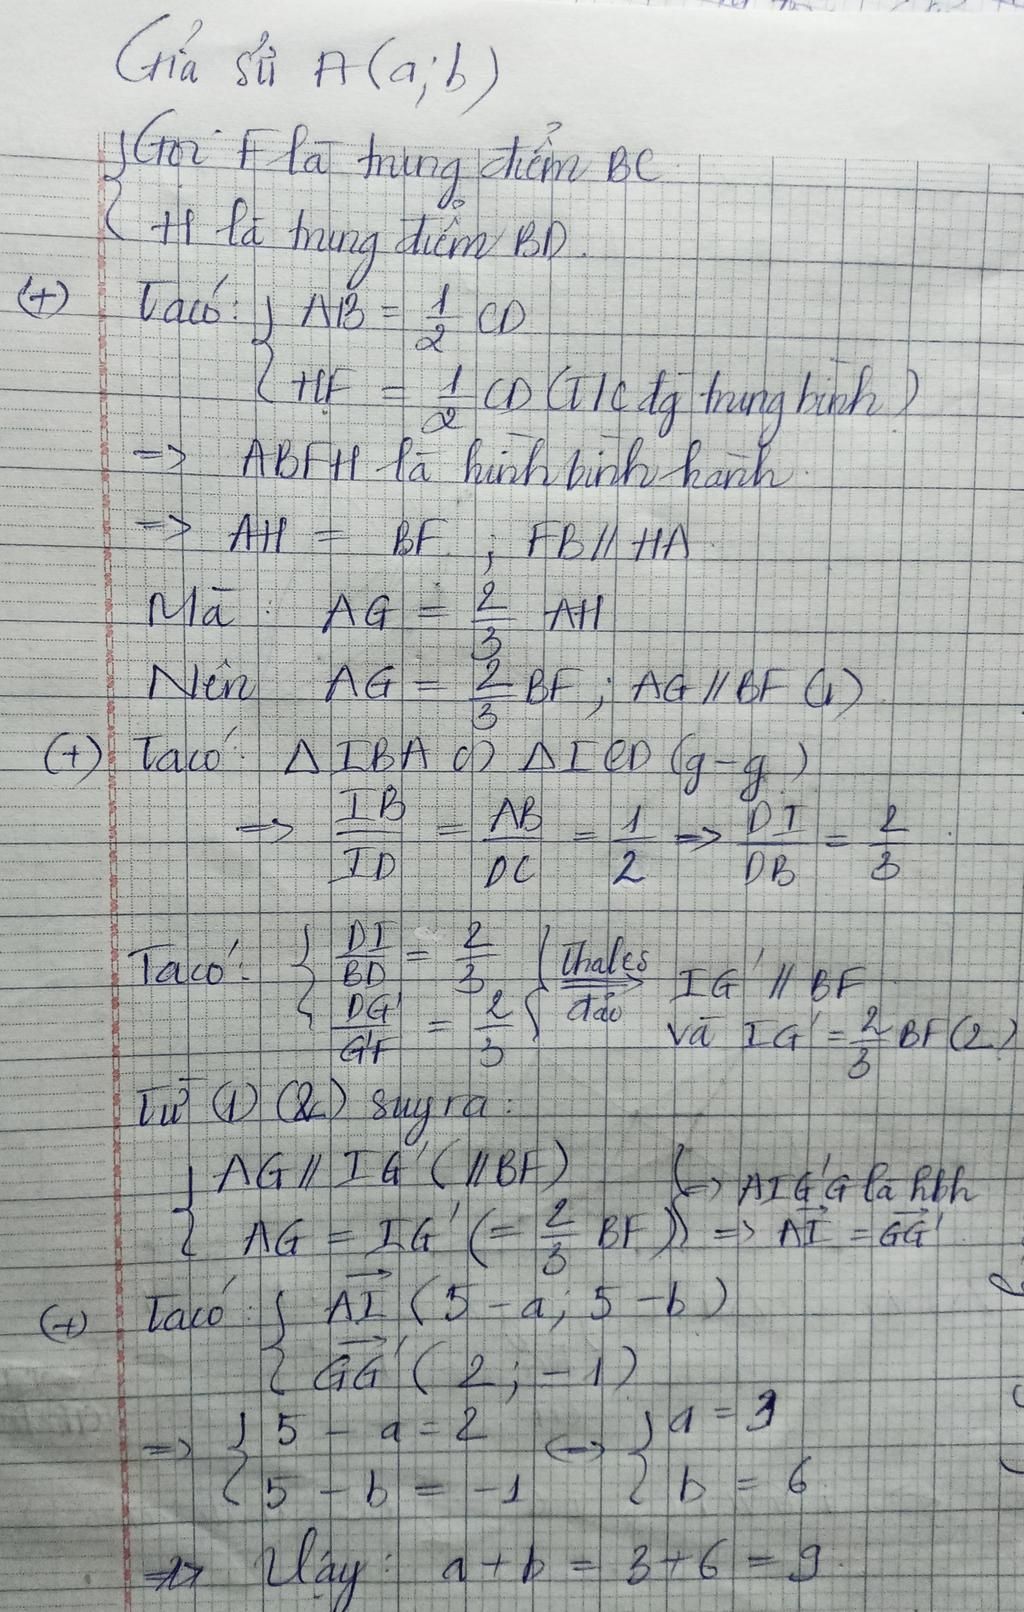 Giả sử A(a;b)
{ Gọi F là trung điểm BC
H là trung điểm BD.
(+) Ta có: { AB = 1/2 CD
HF = 1/2 CD (T/C đg trung bình)
=> ABFH là hình bình hành
=> AH = BF ; FB // HA
Mà: AG = 2/3 AH
Nên AG = 2/3 BF ; AG // BF (1)
(+) Ta có: Δ IBA ∽ Δ ICD (g-g)
=> IB/ID = AB/DC = 1/2 => DI/DB = 2/3
Ta có: { DI/BD = 2/3
DG'/G'F = 2/3 } Thales đảo => IG' // BF
và IG' = 2/3 BF (2)
Từ (1) (2) suy ra:
{ AG // IG' (// BF)
AG = IG' (= 2/3 BF) } => AIG'G là hbh
=> \overrightarrow{AI} = \overrightarrow{GG'}
(+) Ta có: { \overrightarrow{AI} (5 - a; 5 - b)
\overrightarrow{GG'} (2; -1)
=> { 5 - a = 2 <=> { a = 3
5 - b = -1 b = 6
=> Vậy: a + b = 3 + 6 = 9.